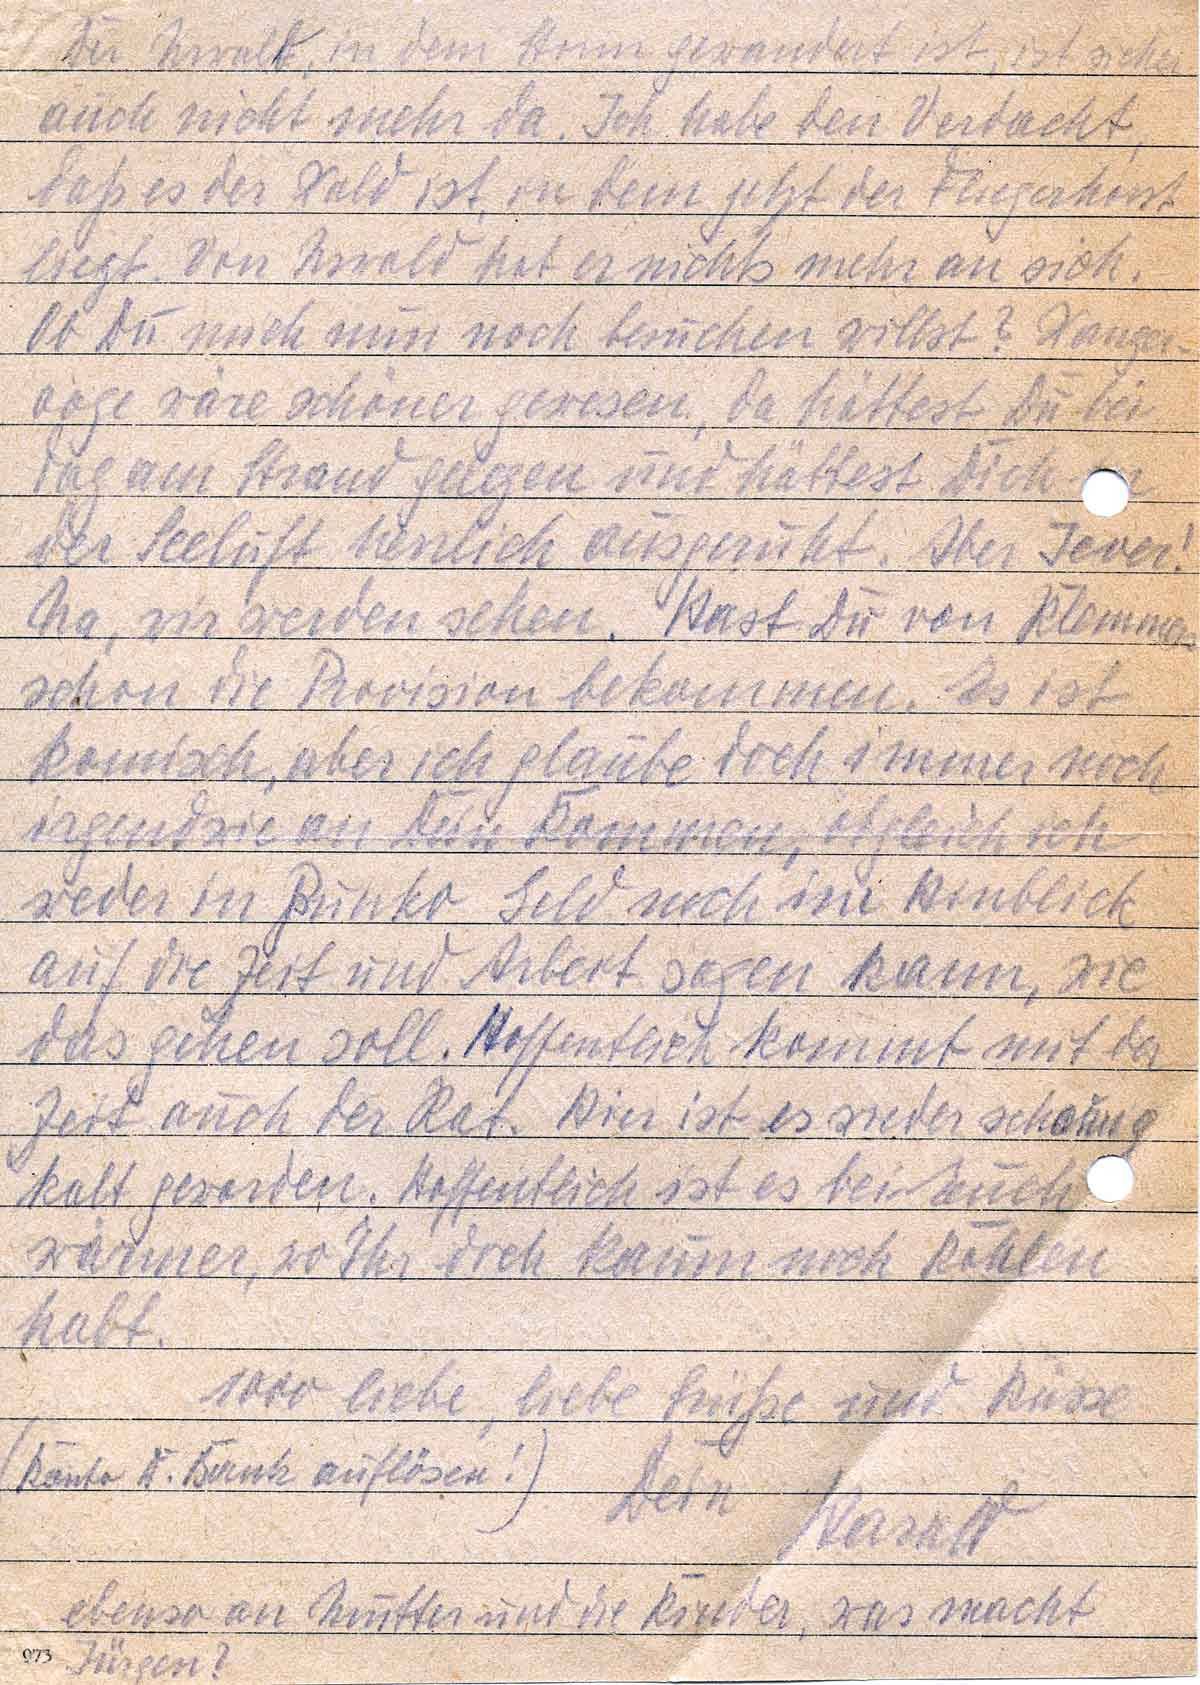 Der Urwald, in dem Homm gewandert ist, ist sicher
auch nicht mehr da. Ich habe den Verdacht,
daß es der Wald ist, in dem jetzt der Fliegerhorst
liegt. Von Urwald hat er nichts mehr an sich.
Ob Du mich nun noch besuchen willst? Wanger-
ooge wäre schöner gewesen, da hättest Du bei
Tag am Strand gelegen und hättest Dich in
der Seeluft herrlich ausgeruht. Aber Jever!
Na, wir werden sehen. Hast Du von Klemmer
schon die Provision bekommen. Es ist
komisch, aber ich glaube doch immer noch
irgendwie an Dein Kommen, obgleich ich
weder in Punkto Geld noch im Hinblick
auf die Zeit und Arbeit sagen kann, wie
das gehen soll. Hoffentlich kommt mit der
Zeit auch der Rat. Hier ist es wieder schaurig
kalt geworden. Hoffentlich ist es bei Euch
wärmer, wo Ihr doch kaum noch Kohlen
habt.
1000 liebe, liebe Grüße und Küsse
(Konto D. Bank auflösen!) Dein Harald
ebenso an Mutter und die Kinder, was macht
Jürgen?
Q73